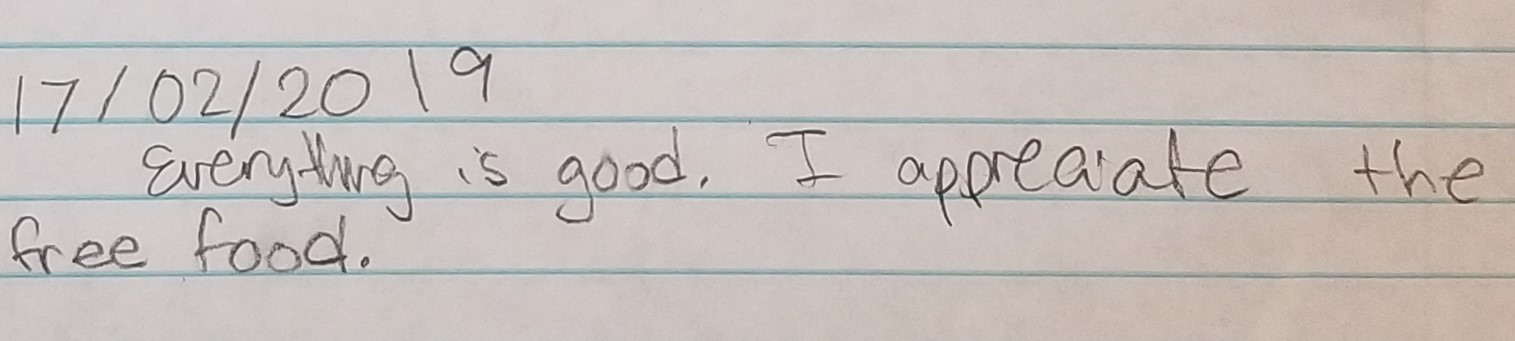 17/02/2019
Everything is good. I appreciate the
free food.